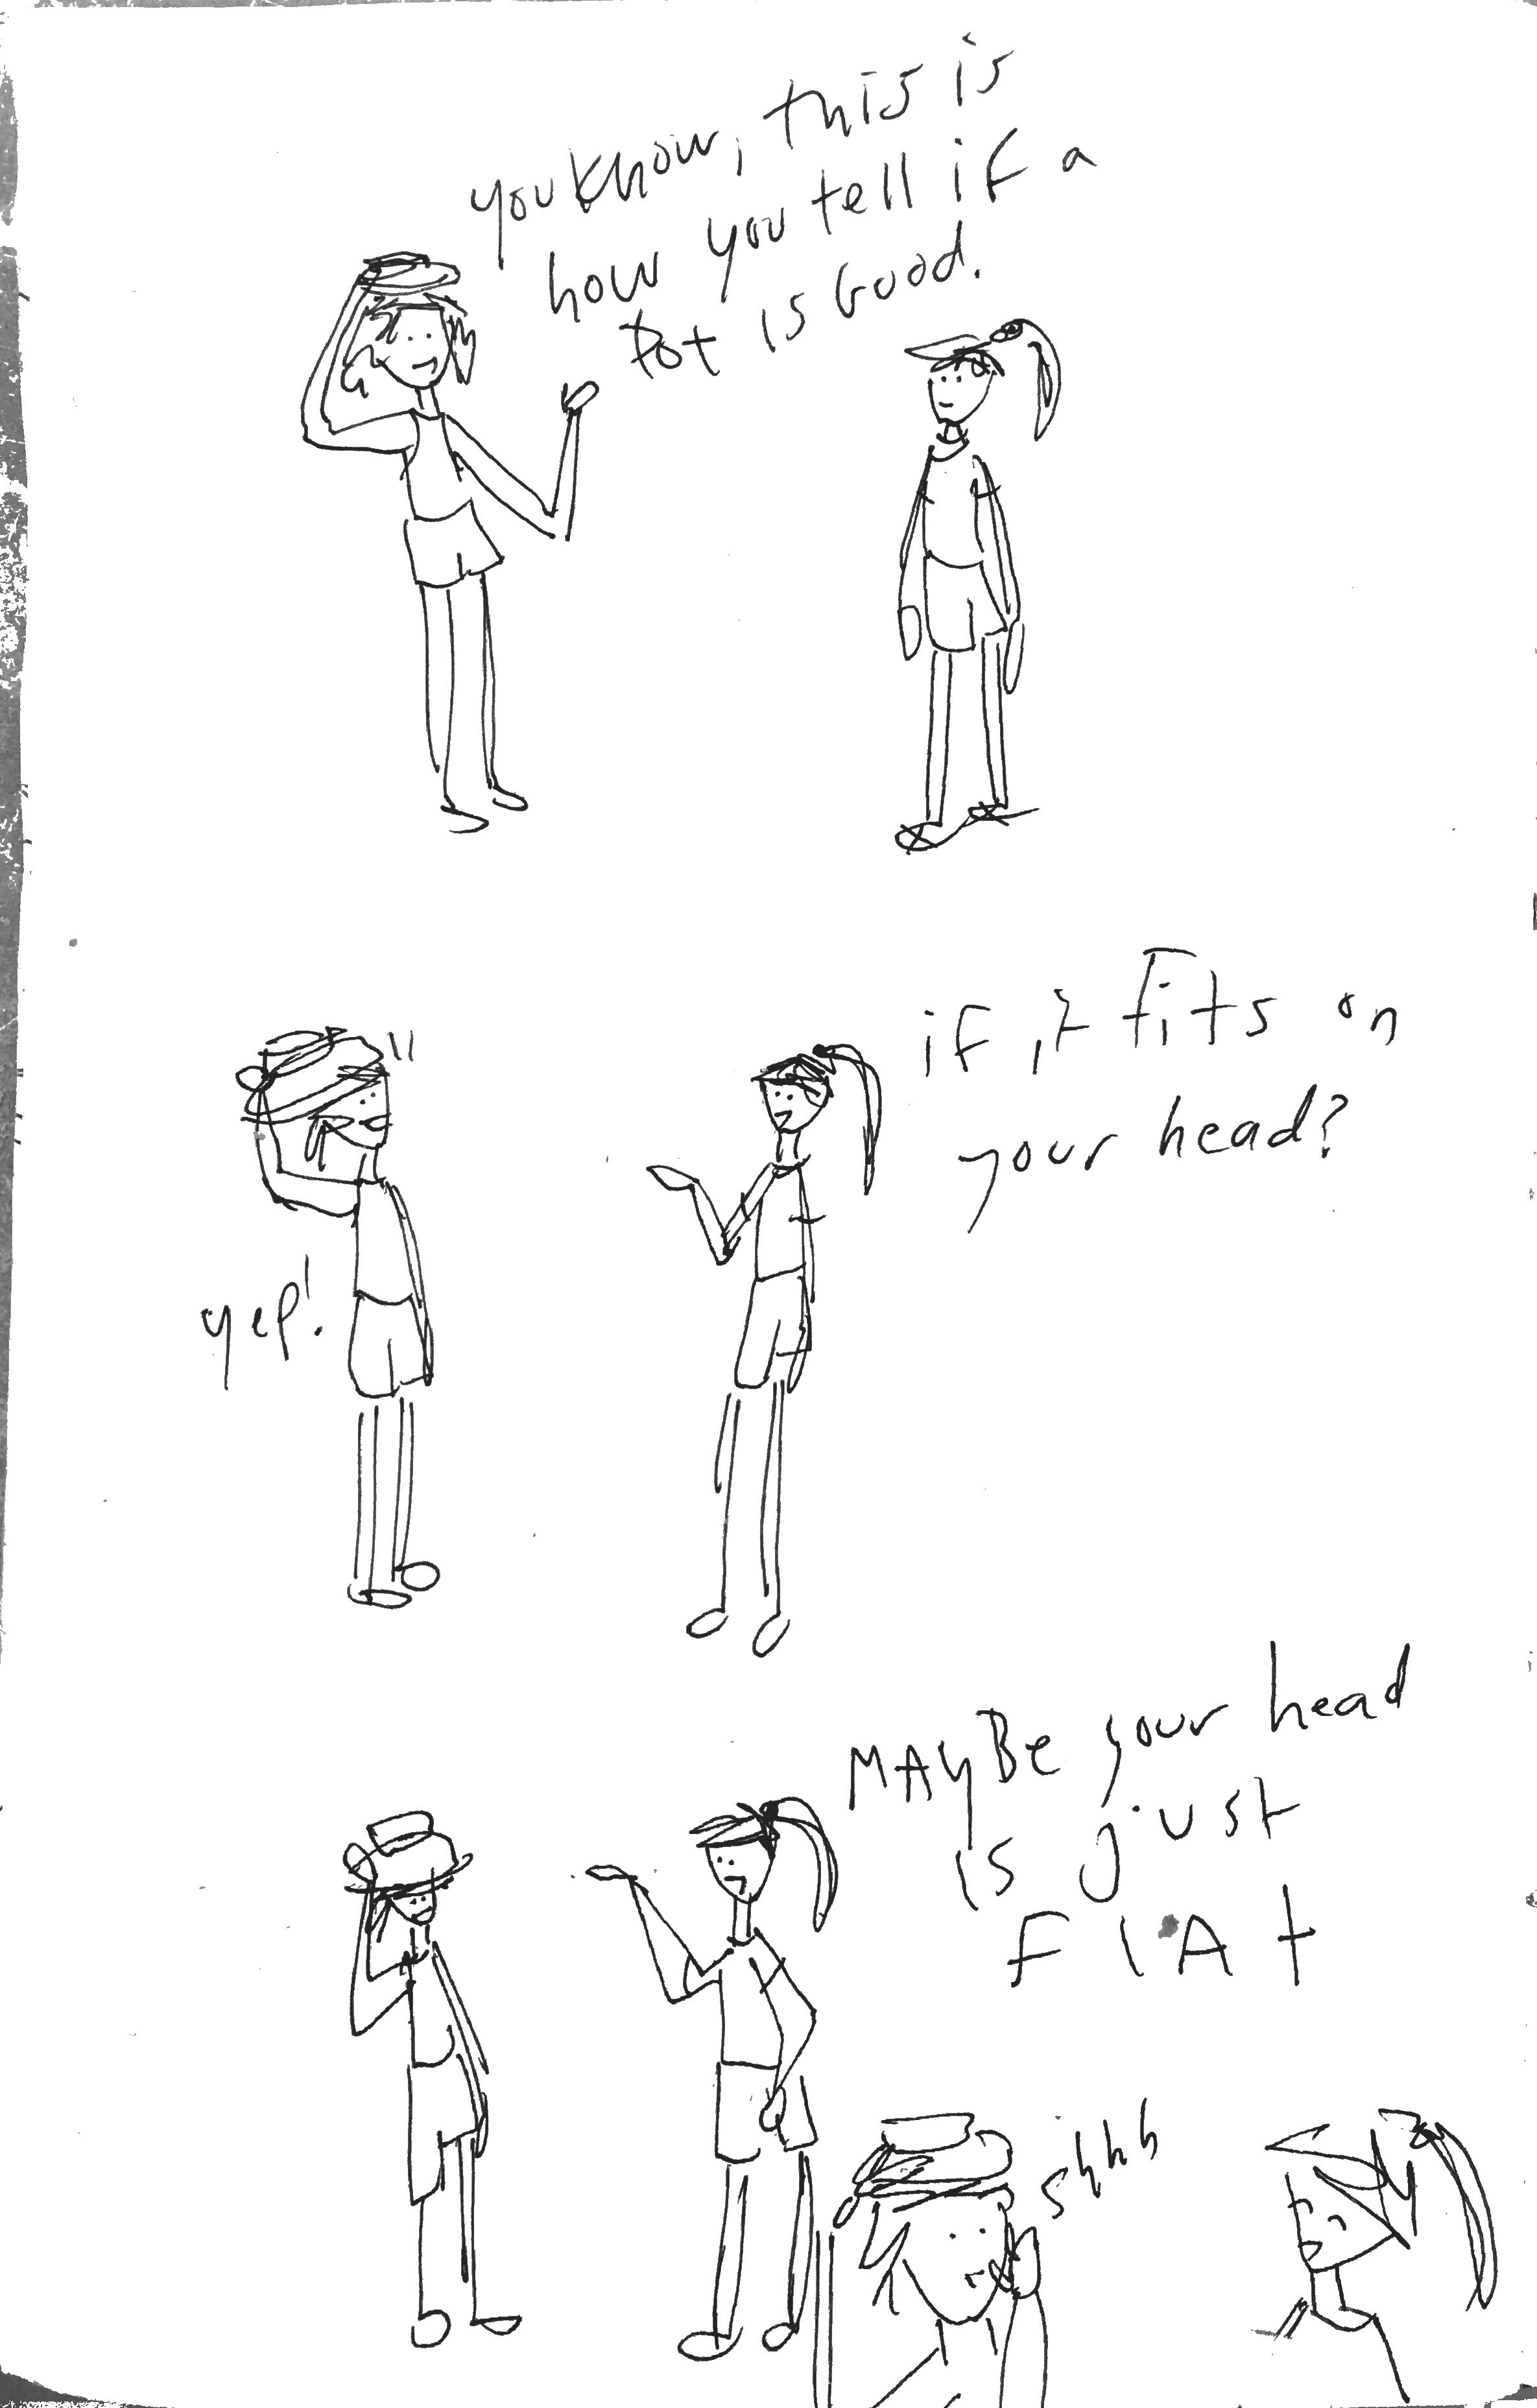 you know, this is
how you tell if a
Pot is Good.
if it fits on
your head?
yep!
MAyBe your head
is just
FlAt
shhh